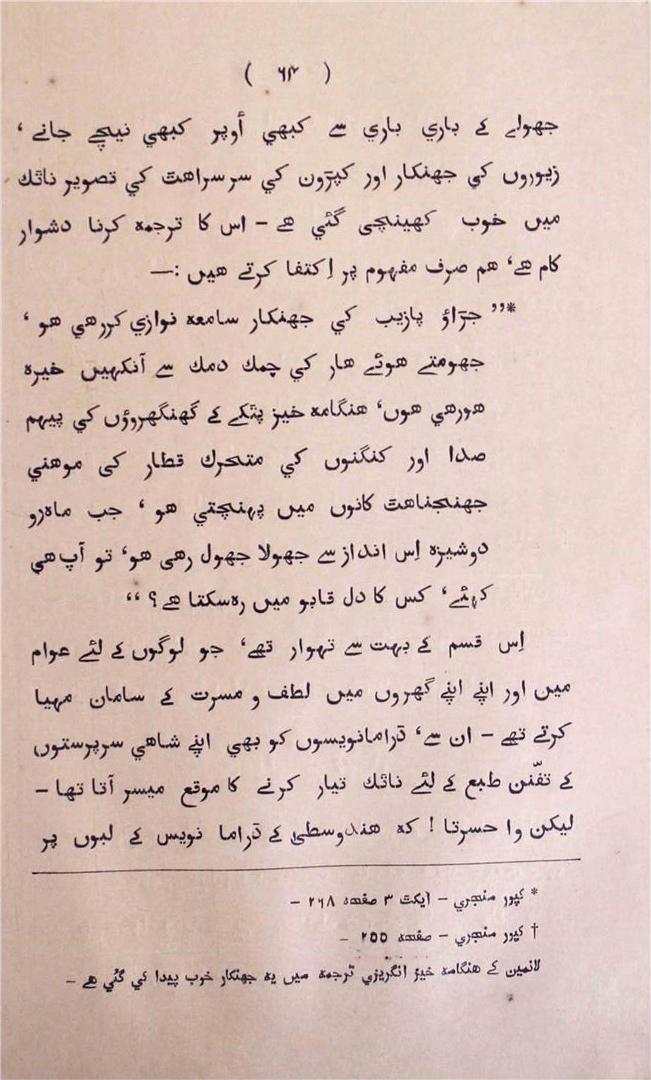 ( ۶۴ )
جھولے کے باري باري سے کبھي اُوپر کبھي نیچے جانے ،
زیوروں کي جھنکار اور کپڑوں کي سرسراھت کي تصویر ناٹك
میں خوب کھینچی گئي ھے – اس کا ترجمہ کرنا دشوار
کام ھے، ھم صرف مفہوم پر اِکتفا کرتے ھیں :—
*,, جڑاؤ پازیب کي جھنکار سامعہ نوازي کررھي ھو ،
جھومتے ھوئے ھار کي چمك دمك سے آنکھیں خیرہ
ھورھي ھوں، ھنگامہ خیز پٹکے کے گھنگھروؤں کي پیہم
صدا اور کنگنوں کي متحرك قطار کی موھني
جھنجناھت کانوں میں پہنچتي ھو ، جب ماہرو
دوشیزہ اِس انداز سے جھولا جھول رھی ھو، تو آپ ھي
کہئے، کس کا دل قابو میں رہ سکتا ھے؟ ‘‘
اِس قسم کے بہت سے تہوار تھے، جو لوگوں کے لئے عوام
میں اور اپنے اپنے گھروں میں لطف و مسرت کے سامان مہیا
کرتے تھے – ان سے، ڈرامانویسوں کو بھي اپنے شاھي سرپرستوں
کے تفّنن طبع کے لئے ناٹك تیار کرنے کا موقع میسر آتا تھا –
لیکن وا حسرتا ! کہ ھندوسطیٰ کے ڈراما نویس کے لبوں پر
* کپور منجري – ایکٹ ۳ صفحہ ۲۶۸ –
† کپور منجري – صفحہ ۲۵۵ –
لانمین کے ھنگامہ خیز انگریزي ترجمہ میں یہ جھنکار خوب پیدا کي گئي ھے –